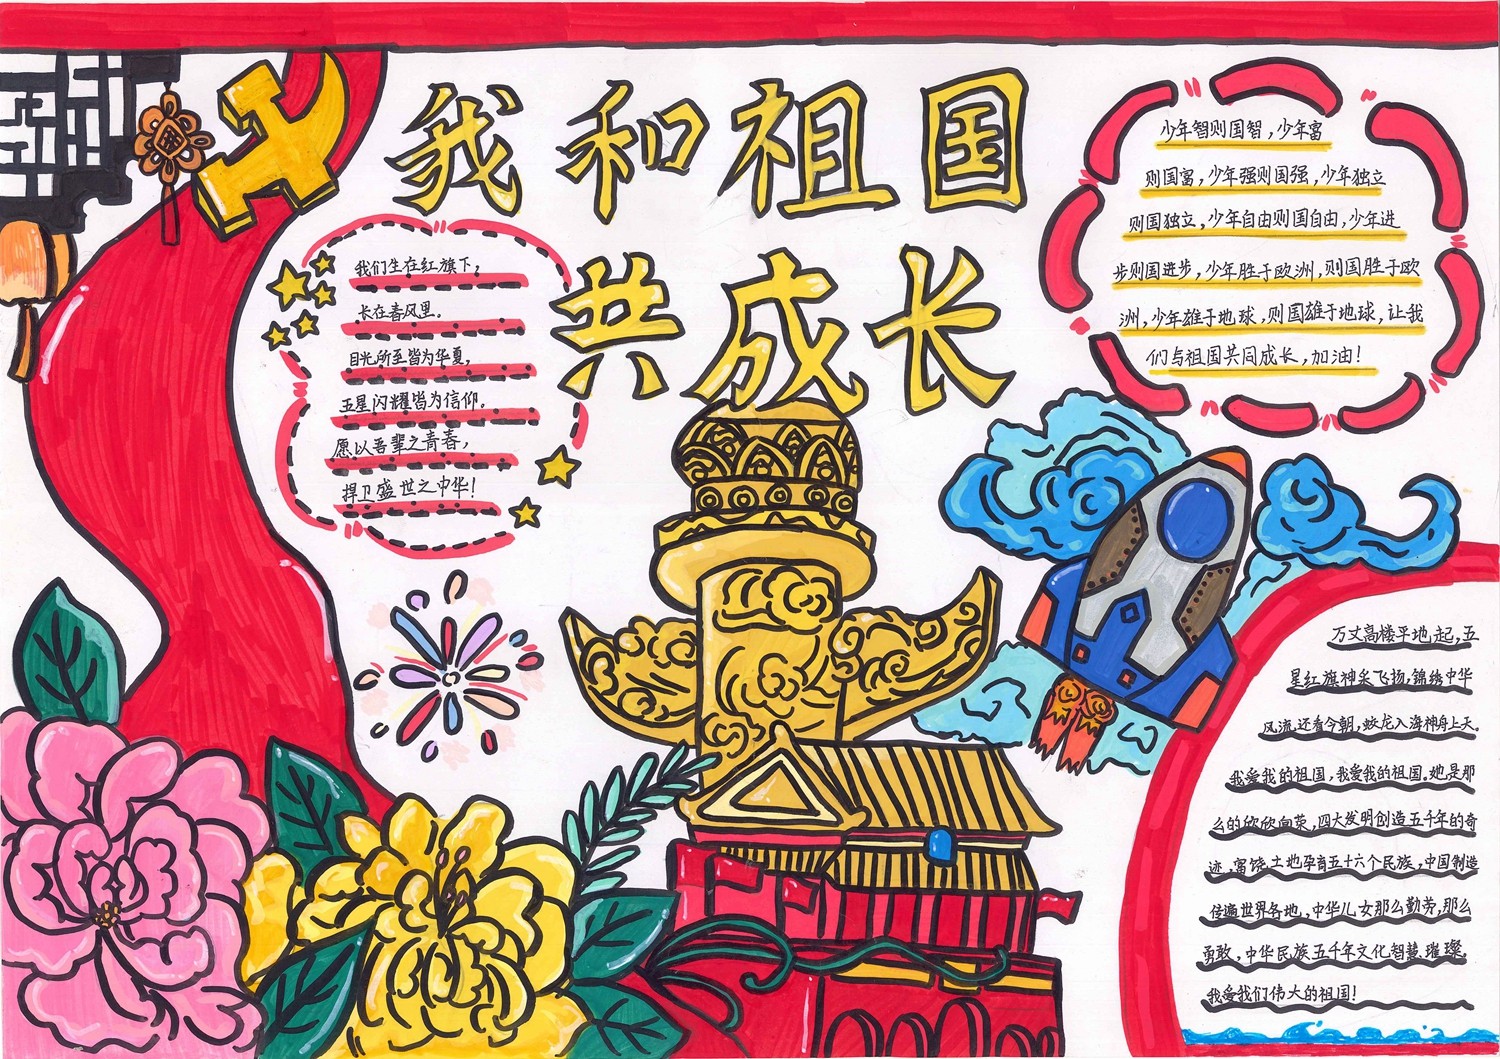 我和祖国
共成长
我们生在红旗下，
长在春风里。
目光所至皆为华夏，
五星闪耀皆为信仰。
愿以吾辈之青春，
捍卫盛世之中华！
少年智则国智，少年富
则国富，少年强则国强，少年独立
则国独立，少年自由则国自由，少年进
步则国进步，少年胜于欧洲，则国胜于欧
洲，少年雄于地球，则国雄于地球，让我
们与祖国共同成长，加油！
万丈高楼平地起，五
星红旗神采飞扬，锦绣中华
风流还看今朝，蛟龙入海神舟上天。
我爱我的祖国，我爱我的祖国。她是那
么的欣欣向荣，四大发明创造五千年的奇
迹，富饶土地孕育五十六个民族，中国制造
传遍世界各地，中华儿女那么勤劳，那么
勇敢，中华民族五千年文化智慧璀璨。
我爱我们伟大的祖国！